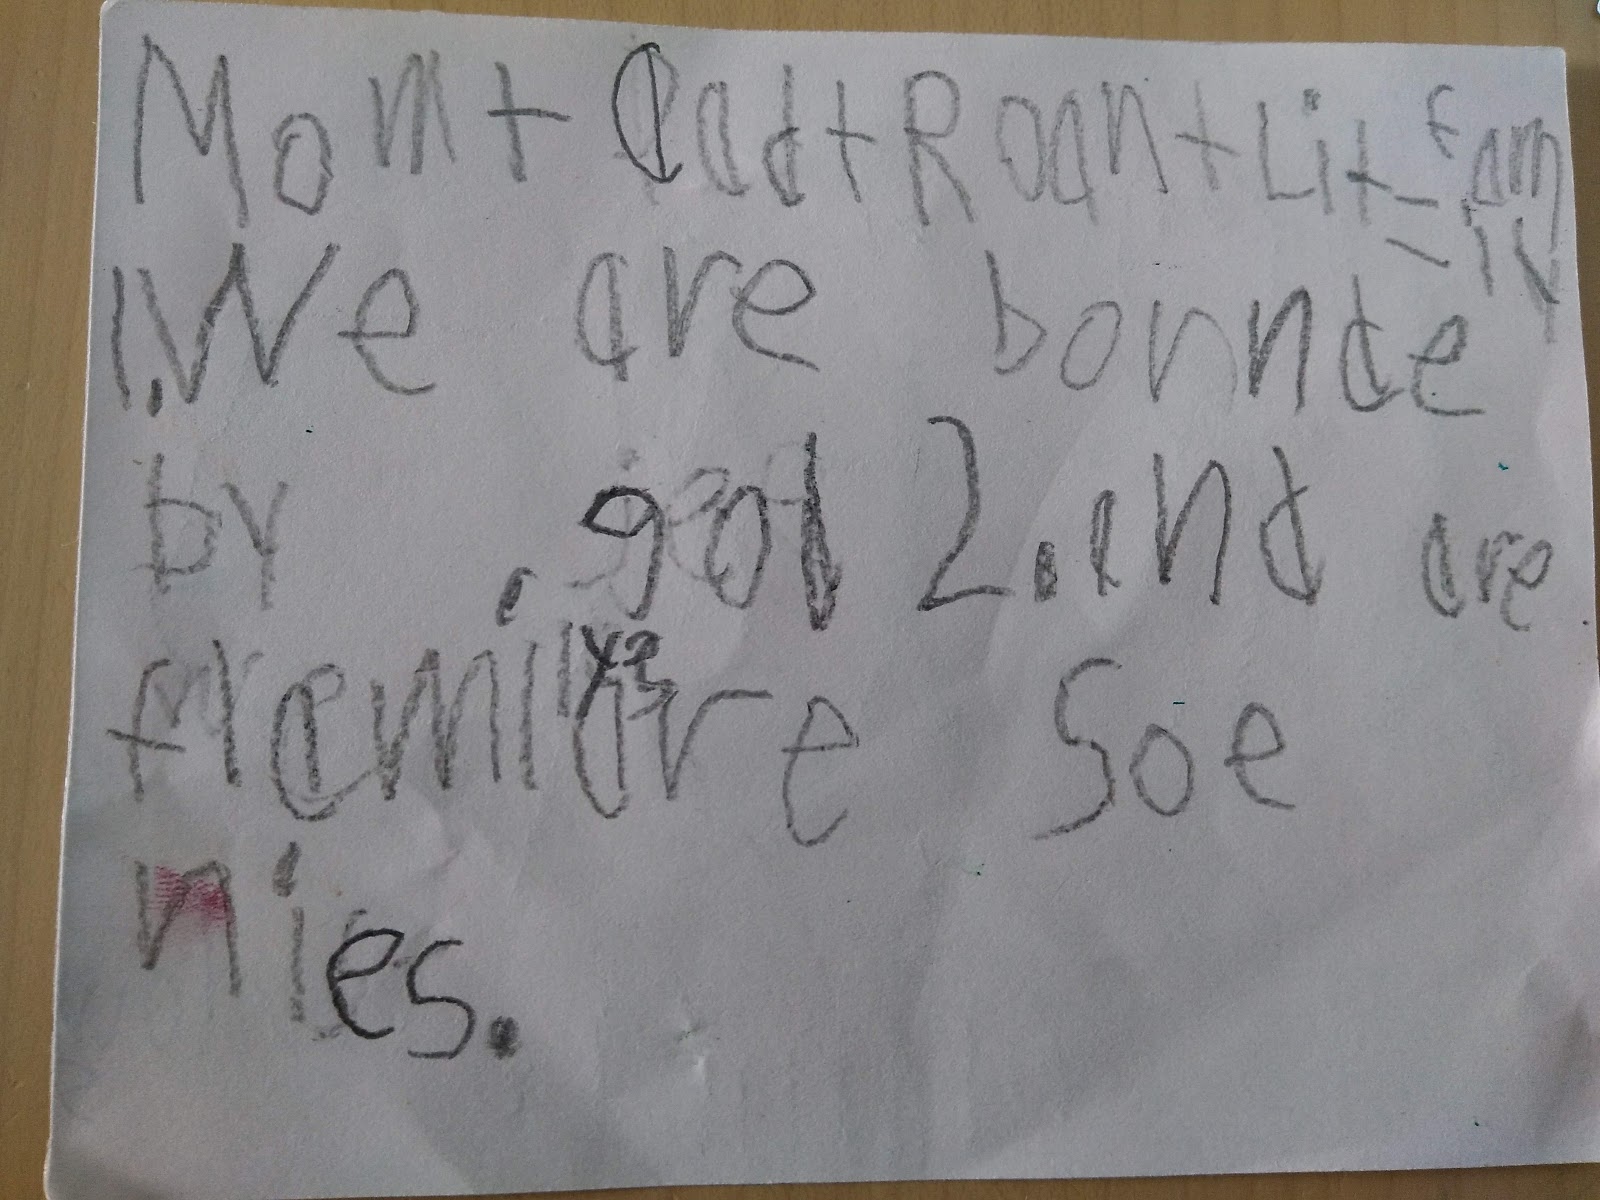 Mom + Dad + Roan + Lit - fam
- ily
1. We are bonnde
by . god 2. and are
are soe
nies.